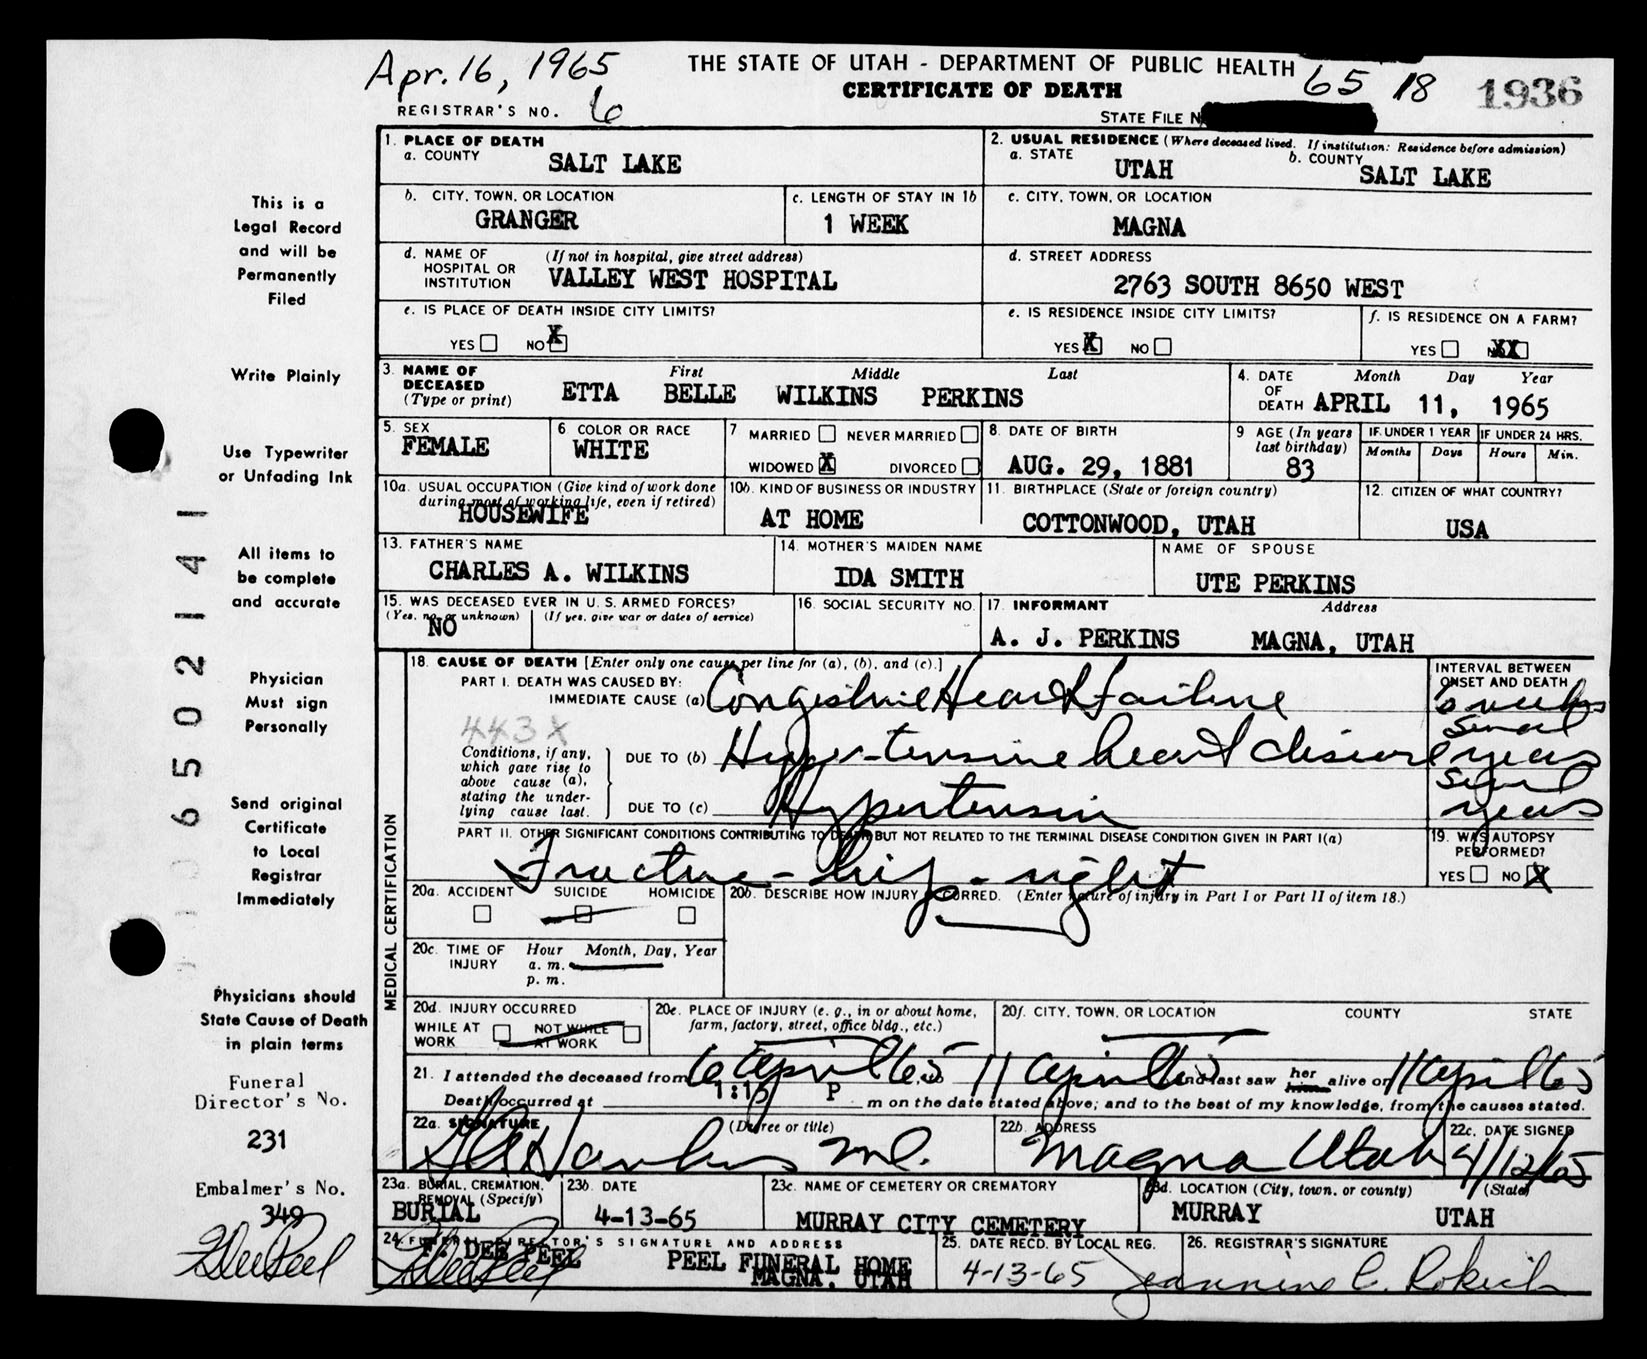 Apr. 16, 1965
THE STATE OF UTAH - DEPARTMENT OF PUBLIC HEALTH
65 18 1936
CERTIFICATE OF DEATH
REGISTRAR'S NO. 6
STATE FILE N
1. PLACE OF DEATH
a. COUNTY SALT LAKE
2. USUAL RESIDENCE (Where deceased lived. If institution: Residence before admission)
a. STATE UTAH b. COUNTY SALT LAKE
b. CITY, TOWN, OR LOCATION GRANGER
c. LENGTH OF STAY IN 1b 1 WEEK
c. CITY, TOWN, OR LOCATION MAGNA
d. NAME OF HOSPITAL OR INSTITUTION (If not in hospital, give street address)
VALLEY WEST HOSPITAL
d. STREET ADDRESS
2763 SOUTH 8650 WEST
e. IS PLACE OF DEATH INSIDE CITY LIMITS?
YES NO X
e. IS RESIDENCE INSIDE CITY LIMITS?
YES X NO
f. IS RESIDENCE ON A FARM?
YES XX
3. NAME OF DECEASED (Type or print)
First Middle Last
ETTA BELLE WILKINS PERKINS
4. DATE OF DEATH Month Day Year
APRIL 11, 1965
5. SEX FEMALE
6 COLOR OR RACE WHITE
7 MARRIED NEVER MARRIED
WIDOWED X DIVORCED
8. DATE OF BIRTH
AUG. 29, 1881
9 AGE (In years last birthday) 83
IF UNDER 1 YEAR Months Days
IF UNDER 24 HRS. Hours Min.
10a. USUAL OCCUPATION (Give kind of work done during most of working life, even if retired)
HOUSEWIFE
10b. KIND OF BUSINESS OR INDUSTRY
AT HOME
11. BIRTHPLACE (State or foreign country)
COTTONWOOD, UTAH
12. CITIZEN OF WHAT COUNTRY?
USA
13. FATHER'S NAME
CHARLES A. WILKINS
14. MOTHER'S MAIDEN NAME
IDA SMITH
NAME OF SPOUSE
UTE PERKINS
15. WAS DECEASED EVER IN U.S. ARMED FORCES?
(Yes, no, or unknown) (If yes, give war or dates of service)
NO
16. SOCIAL SECURITY NO.
17. INFORMANT Address
A. J. PERKINS MAGNA, UTAH
MEDICAL CERTIFICATION
18. CAUSE OF DEATH [Enter only one cause per line for (a), (b), and (c).]
PART I. DEATH WAS CAUSED BY:
IMMEDIATE CAUSE (a) Congestive Heart Failure
INTERVAL BETWEEN ONSET AND DEATH
6 weeks
443X
Conditions, if any, which gave rise to above cause (a), stating the under-lying cause last.
DUE TO (b) Hyper-tensive heart disease
several years
DUE TO (c) Hypertension
several years
PART II. OTHER SIGNIFICANT CONDITIONS CONTRIBUTING TO DEATH BUT NOT RELATED TO THE TERMINAL DISEASE CONDITION GIVEN IN PART I(a)
Fracture - hip - right
19. WAS AUTOPSY PERFORMED?
YES NO X
20a. ACCIDENT SUICIDE HOMICIDE
20b. DESCRIBE HOW INJURY OCCURRED. (Enter nature of injury in Part I or Part II of item 18.)
20c. TIME OF INJURY Hour Month, Day, Year
a. m.
p. m.
20d. INJURY OCCURRED
WHILE AT WORK NOT WHILE AT WORK
20e. PLACE OF INJURY (e. g., in or about home, farm, factory, street, office bldg., etc.)
20f. CITY, TOWN, OR LOCATION COUNTY STATE
21. I attended the deceased from 6 April 65, to 11 April 65 and last saw her him alive on 11 April 65
Death occurred at 1:15 P m on the date stated above; and to the best of my knowledge, from the causes stated.
22a. SIGNATURE (Degree or title)
M.D.
22b. ADDRESS
Magna Utah
22c. DATE SIGNED
4/12/65
23a. BURIAL, CREMATION, REMOVAL (Specify)
BURIAL
23b. DATE
4-13-65
23c. NAME OF CEMETERY OR CREMATORY
MURRAY CITY CEMETERY
23d. LOCATION (City, town, or county) (State)
MURRAY UTAH
24. FUNERAL DIRECTOR'S SIGNATURE AND ADDRESS
F. DEE PEEL PEEL FUNERAL HOME
MAGNA, UTAH
25. DATE RECD. BY LOCAL REG.
4-13-65
26. REGISTRAR'S SIGNATURE
Jeannine C. Rokich
This is a
Legal Record
and will be
Permanently
Filed
Write Plainly
Use Typewriter
or Unfading Ink
All items to
be complete
and accurate
Physician
Must sign
Personally
Send original
Certificate
to Local
Registrar
Immediately
Physicians should
State Cause of Death
in plain terms
Funeral
Director's No.
231
Embalmer's No.
349
F Dee Peel
06502141